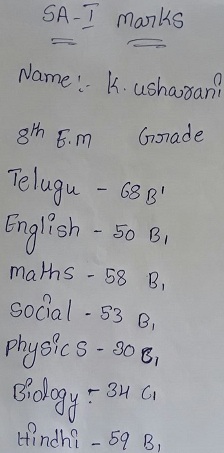 SA-I marks
Name:- K. usharani
8th E.m Grade
Telugu - 68 B1
English - 50 B1
maths - 58 B1
social - 53 B1
physics - 30 C1
Biology - 34 C1
Hindhi - 59 B1